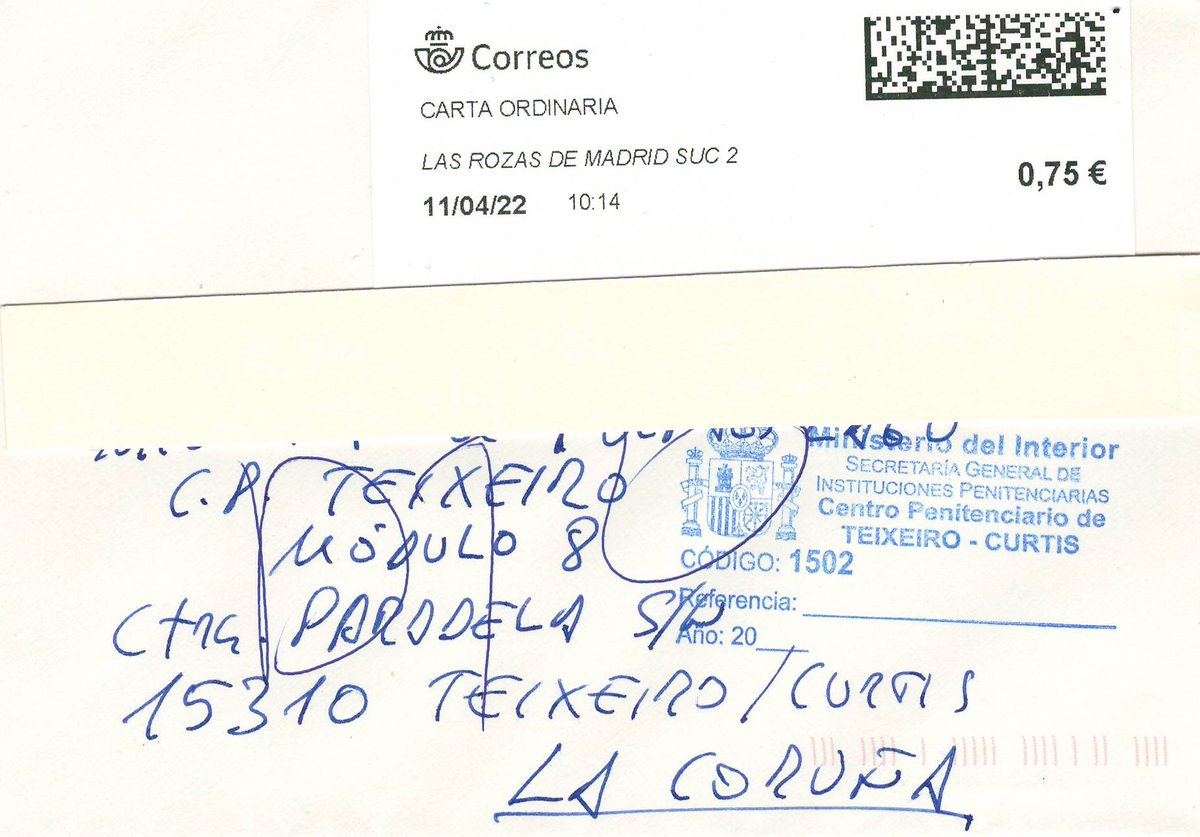 Correos
CARTA ORDINARIA
LAS ROZAS DE MADRID SUC 2
0,75 €
11/04/22 10:14
C.P. TEIXEIRO
MÓDULO 8
Ctra. PARADELA S/N
15310 TEIXEIRO/CURTIS
LA CORUÑA
Ministerio del Interior
SECRETARÍA GENERAL DE
INSTITUCIONES PENITENCIARIAS
Centro Penitenciario de
TEIXEIRO - CURTIS
CÓDIGO: 1502
Referencia:
Año: 20